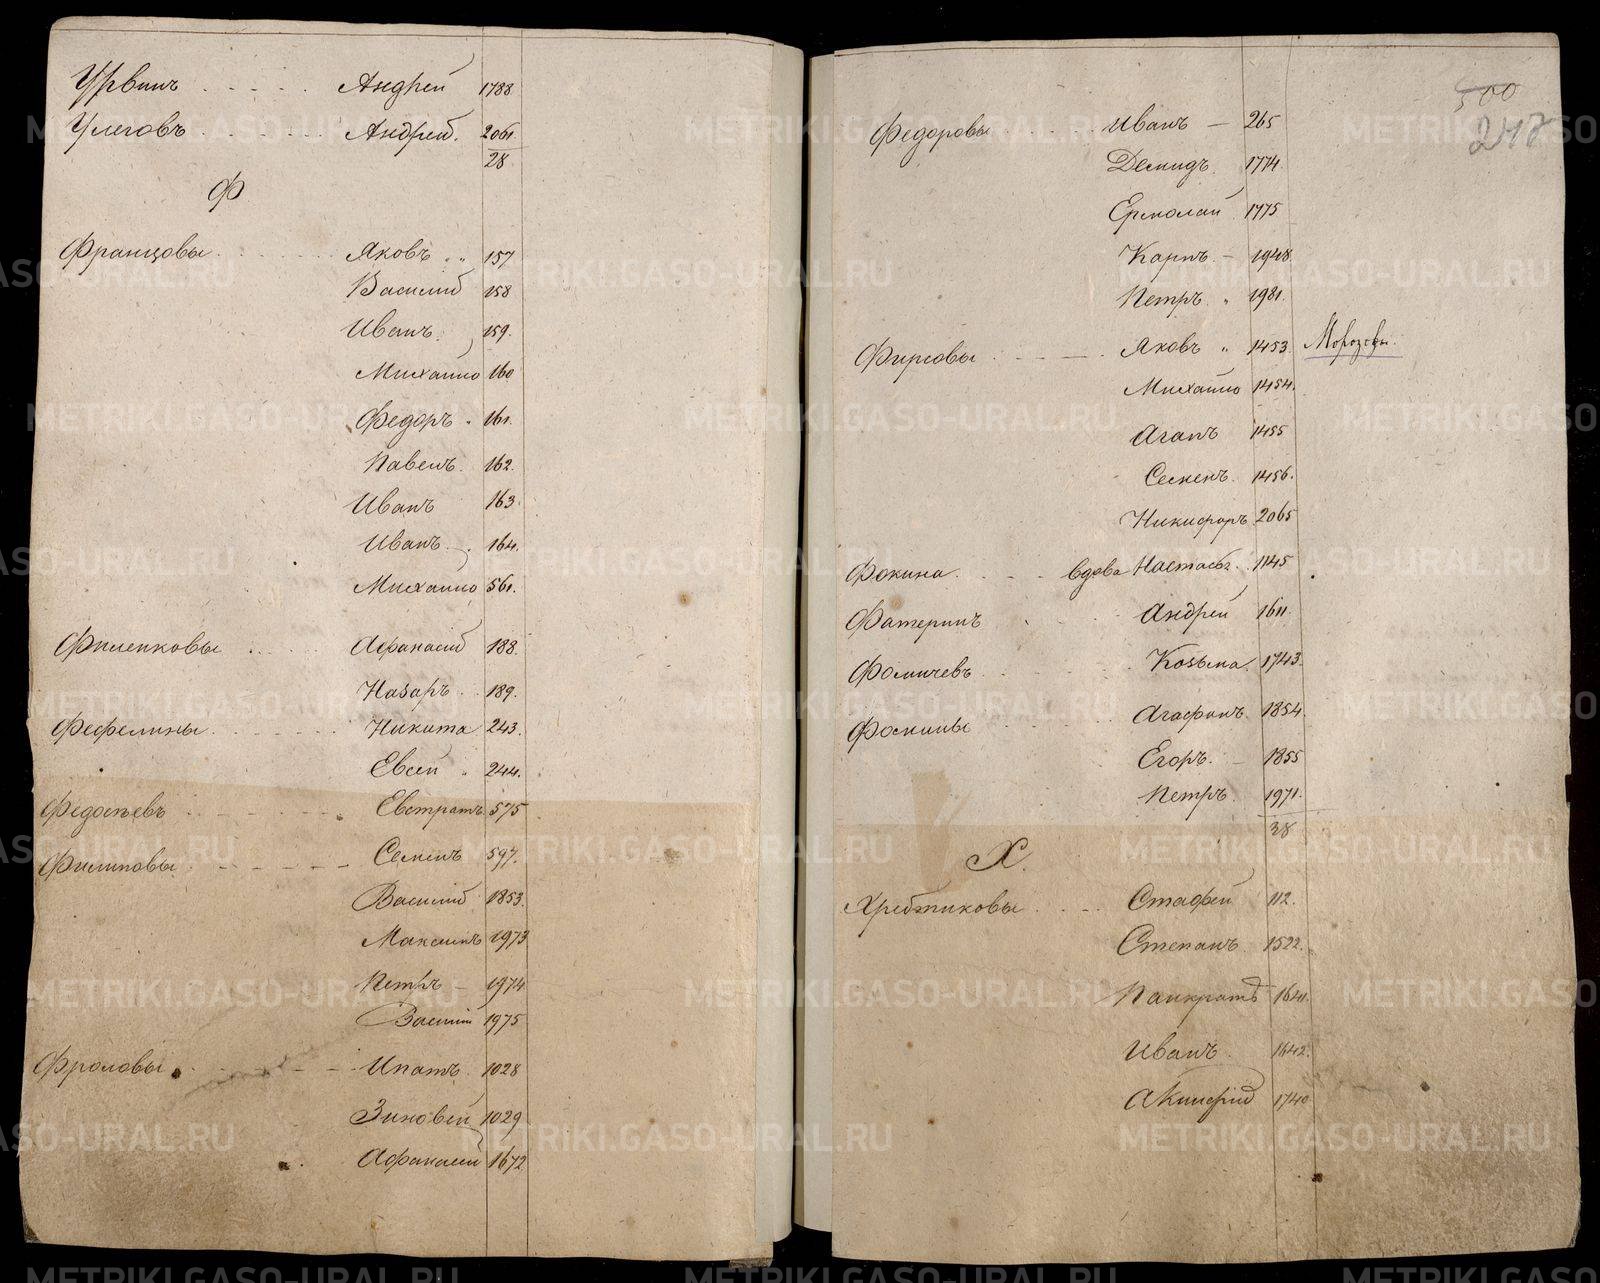 Урвинъ Андрей 1788
Улеговъ Андрей. 2061.
28
Ф
Францовы Яковъ 157
Василий 158
Иванъ 159.
Михаило 160
Федоръ 161.
Павелъ 162.
Иванъ 163.
Иванъ 164.
Михаило 561.
Филенковы Афанасий 188.
Назаръ 189.
Фефелины Никита 243.
Евсей 244.
Федосѣевъ Евстратъ 575
Филиповы Семенъ 597.
Василий 1853.
Максимъ 1973
Петръ 1974
Василий 1975
Фроловы Ипатъ 1028
Зиновей 1029
Афанасий 1672
500
217
Федоровы Иванъ 265
Демидъ 1774.
Ермолай 1775
Карпъ 1948.
Петръ 1981.
Фирсовы Яковъ 1453. Морозовы.
Михаило 1454.
Агапъ 1455
Семенъ 1456.
Никифоръ 2065
Фокина вдова Настасья 1145
Фатеринъ Андрей 1611.
Фомичевъ Козьма 1743.
Фомины Агафонъ 1854.
Егоръ 1855
Петръ 1971.
38
Х.
Хребтиковы Стафей 112.
Степанъ 1522.
Панкратъ 1641.
Иванъ 1642.
Акинфий 1740
METRIKI.GASO-URAL.RU